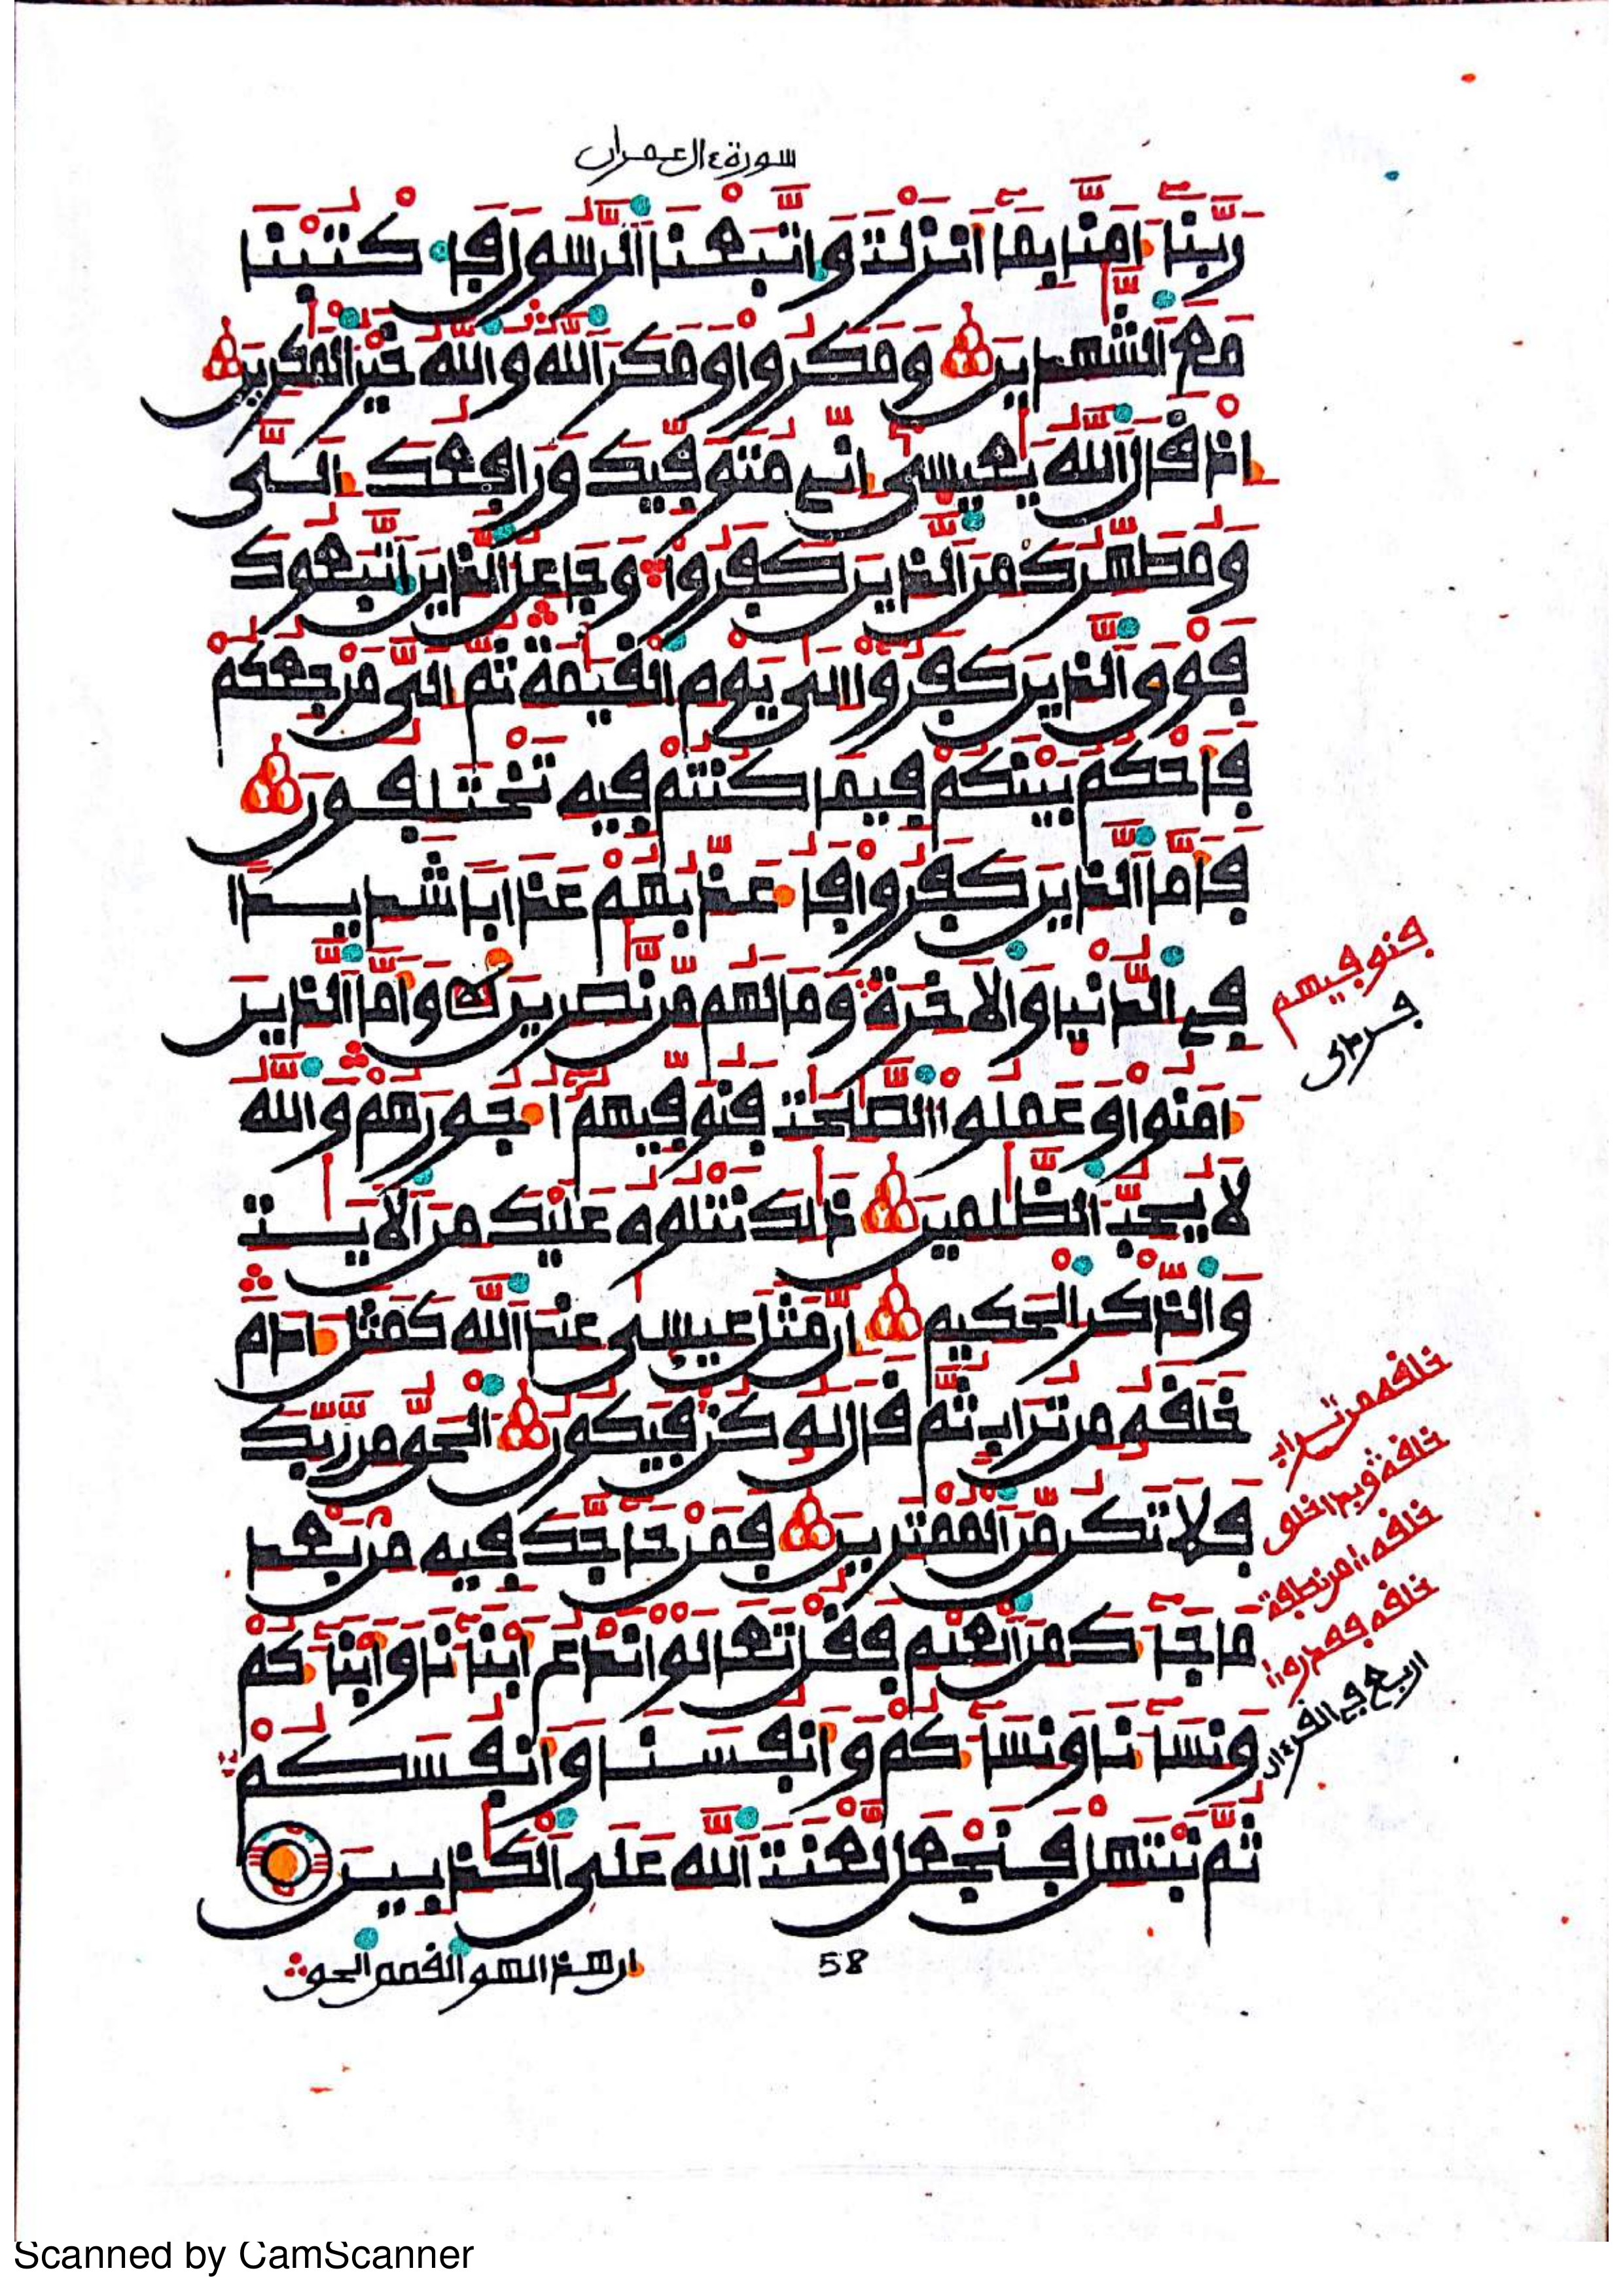 سورة ءال عمران
رَبَّنَا ءَامَنَّا بِمَا أَنزَلْتَ وَاتَّبَعْنَا الرَّسُولَ فَاكْتُبْنَا
مَعَ الشَّٰهِدِينَ وَمَكَرُواْ وَمَكَرَ اللَّهُ وَاللَّهُ خَيْرُ الْمَٰكِرِينَ
إِذْ قَالَ اللَّهُ يَٰعِيسَىٰ إِنِّي مُتَوَفِّيكَ وَرَافِعُكَ إِلَيَّ
وَمُطَهِّرُكَ مِنَ الَّذِينَ كَفَرُواْ وَجَاعِلُ الَّذِينَ اتَّبَعُوكَ
فَوْقَ الَّذِينَ كَفَرُواْ إِلَىٰ يَوْمِ الْقِيَٰمَةِ ثُمَّ إِلَيَّ مَرْجِعُكُمْ
فَأَحْكُمُ بَيْنَكُمْ فِيمَا كُنتُمْ فِيهِ تَخْتَلِفُونَ
فَأَمَّا الَّذِينَ كَفَرُواْ فَأُعَذِّبُهُمْ عَذَابًا شَدِيدًا
فِي الدُّنْيَا وَالْأَخِرَةِ وَمَا لَهُم مِّن نَّٰصِرِينَ وَأَمَّا الَّذِينَ
ءَامَنُواْ وَعَمِلُواْ الصَّٰلِحَٰتِ فَنُوَفِّيهِمُ أُجُورَهُمْ وَاللَّهُ
لَا يُحِبُّ الظَّٰلِمِينَ ذَٰلِكَ نَتْلُوهُ عَلَيْكَ مِنَ الْأَيَٰتِ
وَالذِّكْرِ الْحَكِيمِ إِنَّ مَثَلَ عِيسَىٰ عِندَ اللَّهِ كَمَثَلِ ءَادَمَ
خَلَقَهُ مِن تُرَابٍ ثُمَّ قَالَ لَهُ كُن فَيَكُونُ الْحَقُّ مِن رَّبِّكَ
فَلَا تَكُن مِّنَ الْمُمْتَرِينَ فَمَنْ حَاجَّكَ فِيهِ مِن بَعْدِ
مَا جَاءَكَ مِنَ الْعِلْمِ فَقُلْ تَعَالَوْاْ نَدْعُ أَبْنَاءَنَا وَأَبْنَاءَكُمْ
وَنِسَاءَنَا وَنِسَاءَكُمْ وَأَنفُسَنَا وَأَنفُسَكُمْ
ثُمَّ نَبْتَهِلْ فَنَجْعَل لَّعْنَتَ اللَّهِ عَلَى الْكَٰذِبِينَ
إن هذا لهو القصص الحق
58
فنوفيهم
خلقه من تراب
خلقه من نطفة
خلقه فقدره
اربع في القرءان
Scanned by CamScanner